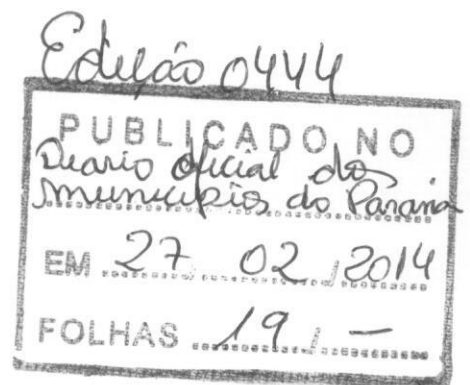 Edição 0444
PUBLICADO NO
Diario oficial dos
municipios do Paraná
EM 27 / 02 / 2014
FOLHAS 19 / —